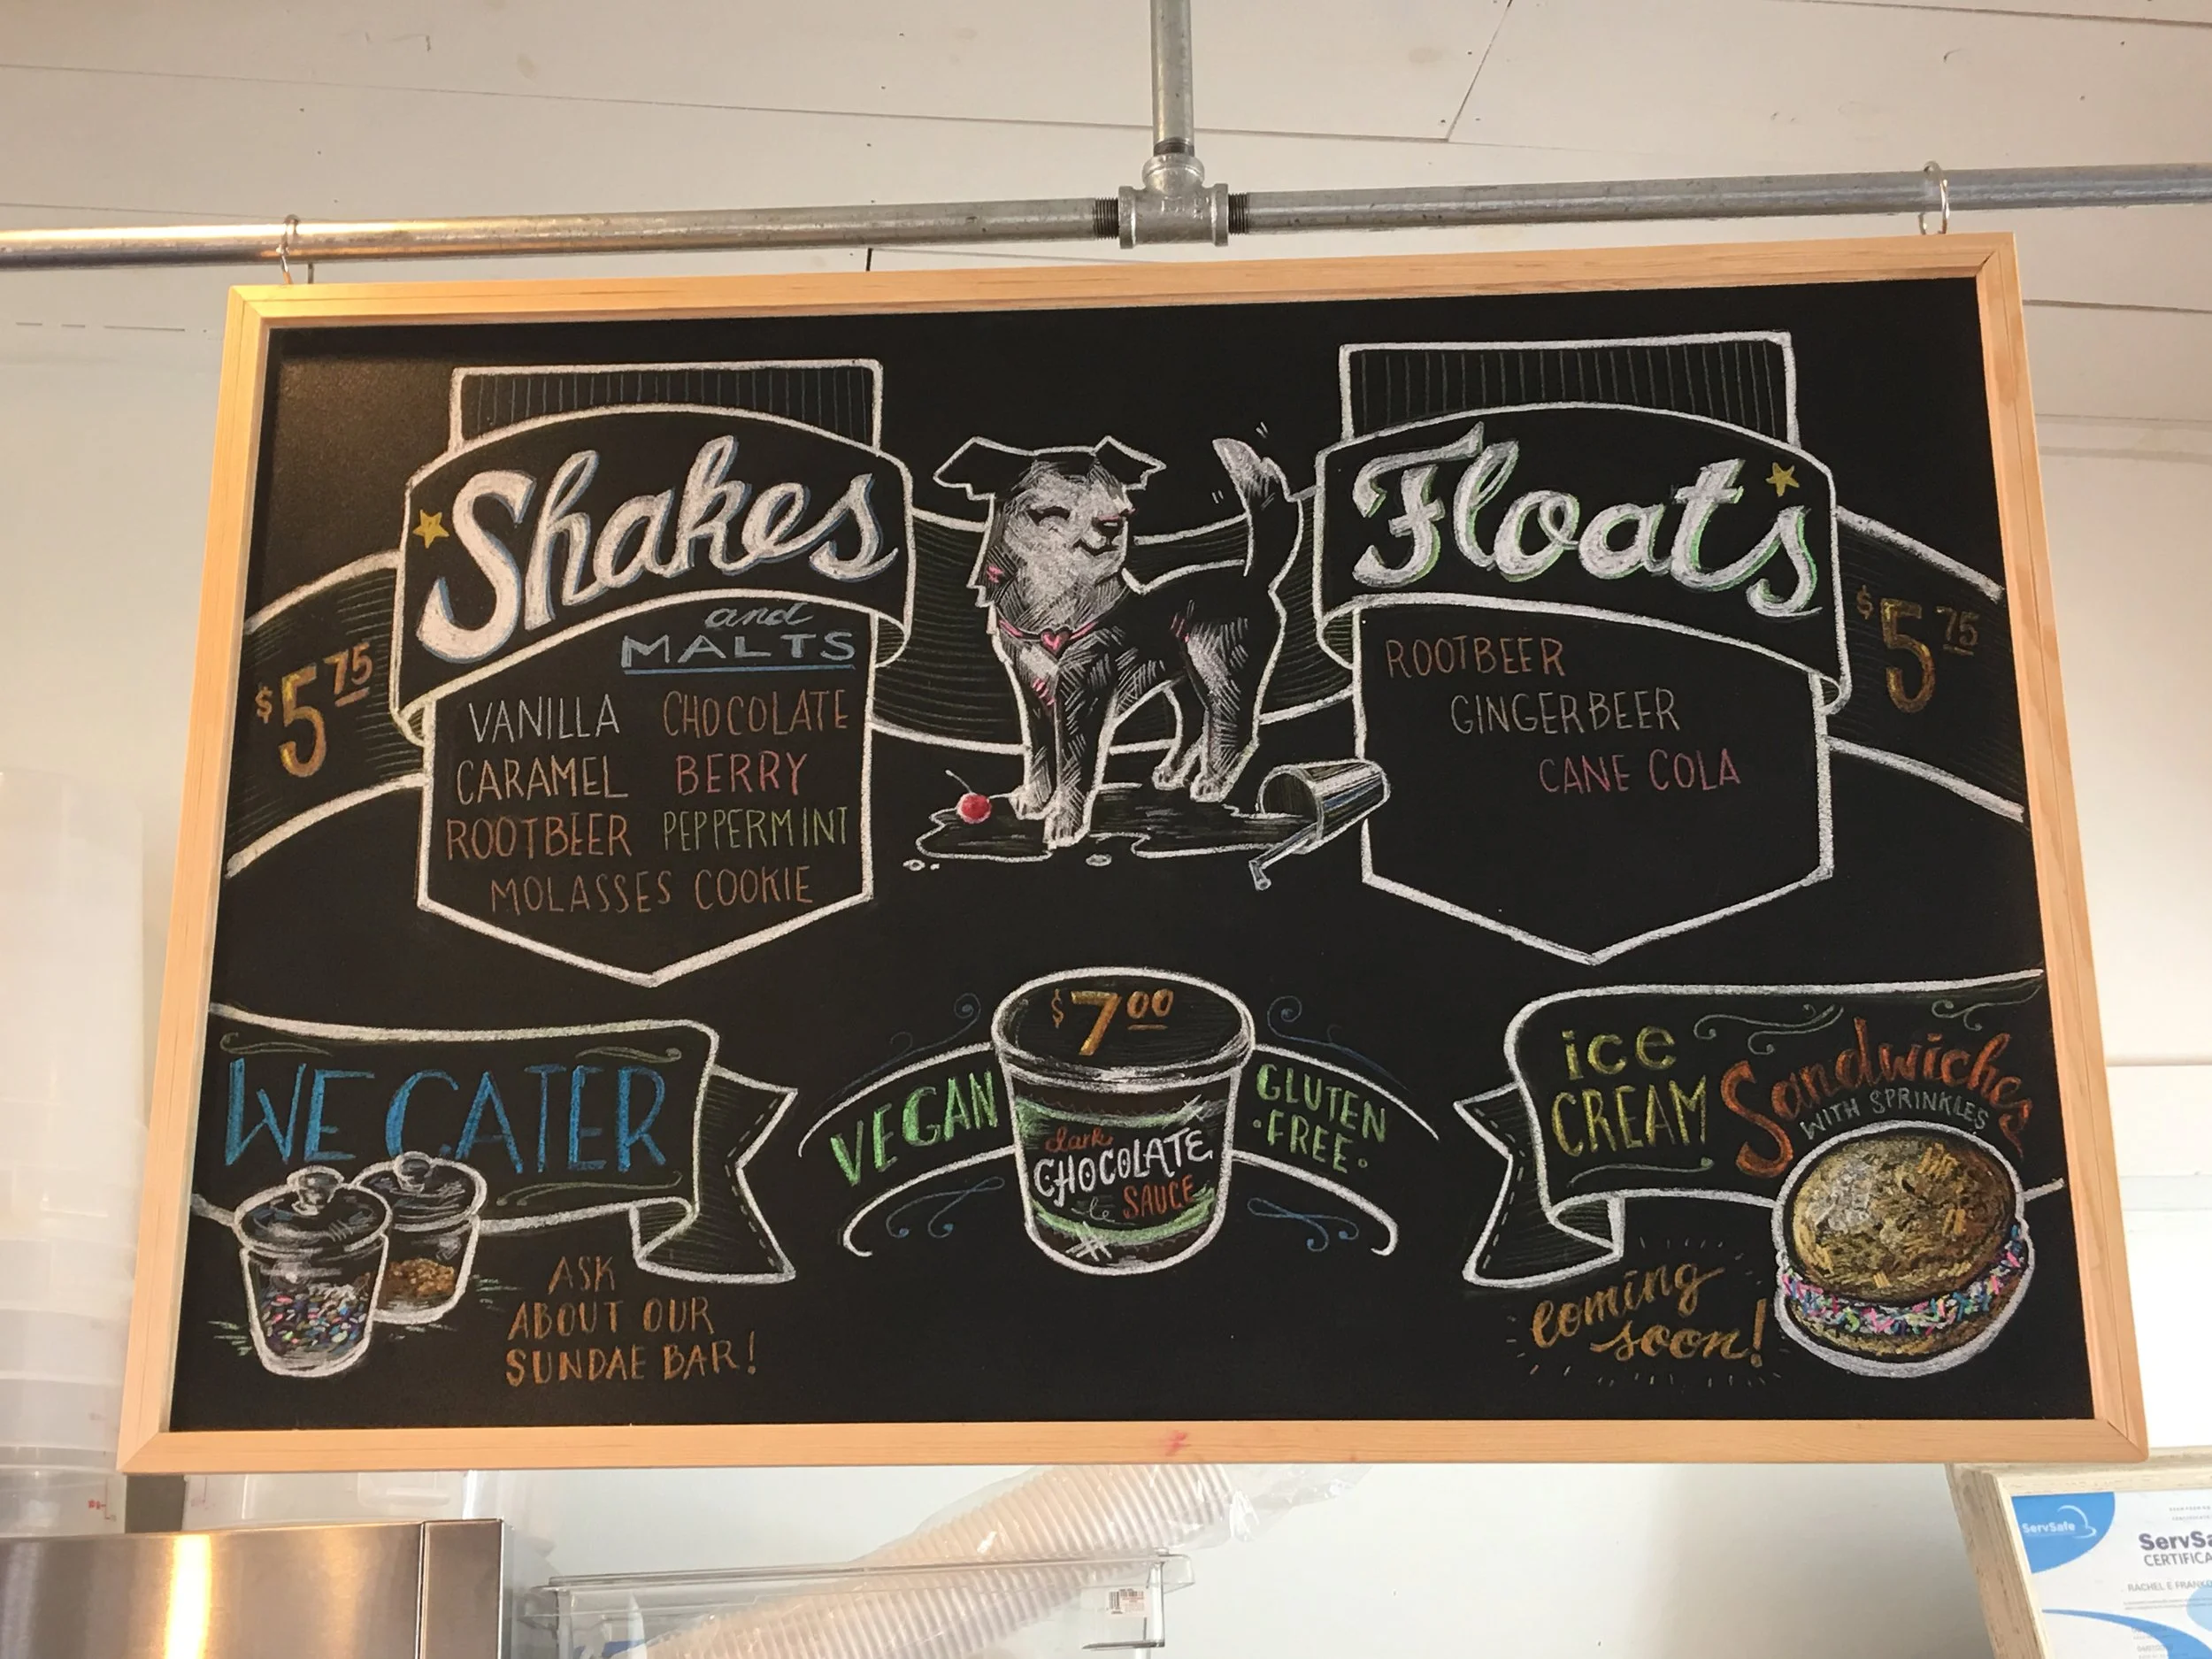 Shakes
and
MALTS
$5 75
VANILLA CHOCOLATE
CARAMEL BERRY
ROOTBEER PEPPERMINT
MOLASSES COOKIE
Floats
$5 75
ROOTBEER
GINGERBEER
CANE COLA
WE CATER
ASK
ABOUT OUR
SUNDAE BAR!
$7 00
VEGAN
dark
CHOCOLATE
SAUCE
GLUTEN
FREE
ICE
CREAM
Sandwiches
WITH SPRINKLES
coming
soon!
ServSafe
CERTIFICA
RACHEL E